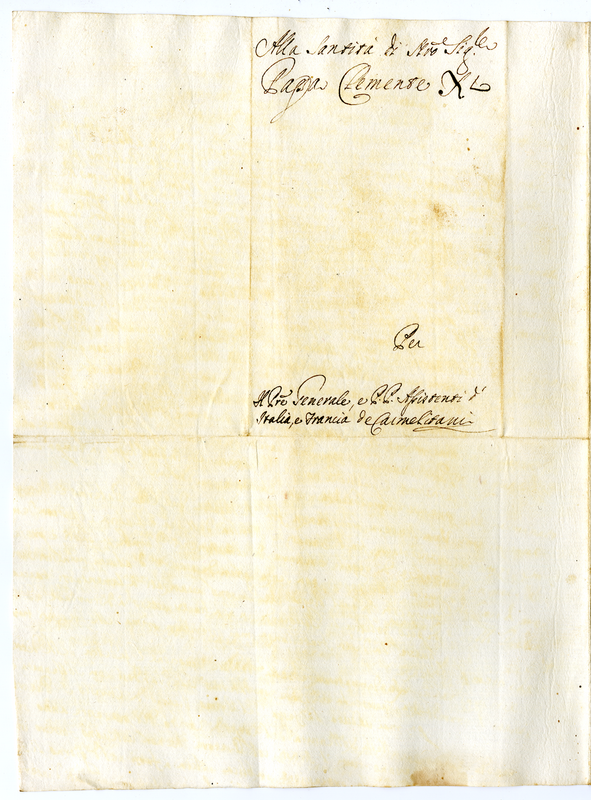 Alla Santità di Nro Sig.re
Pappa Clemente XI
Per
Il Pre Generale, e P.P. Assistenti d'
Italia, e Francia de Carmelitani